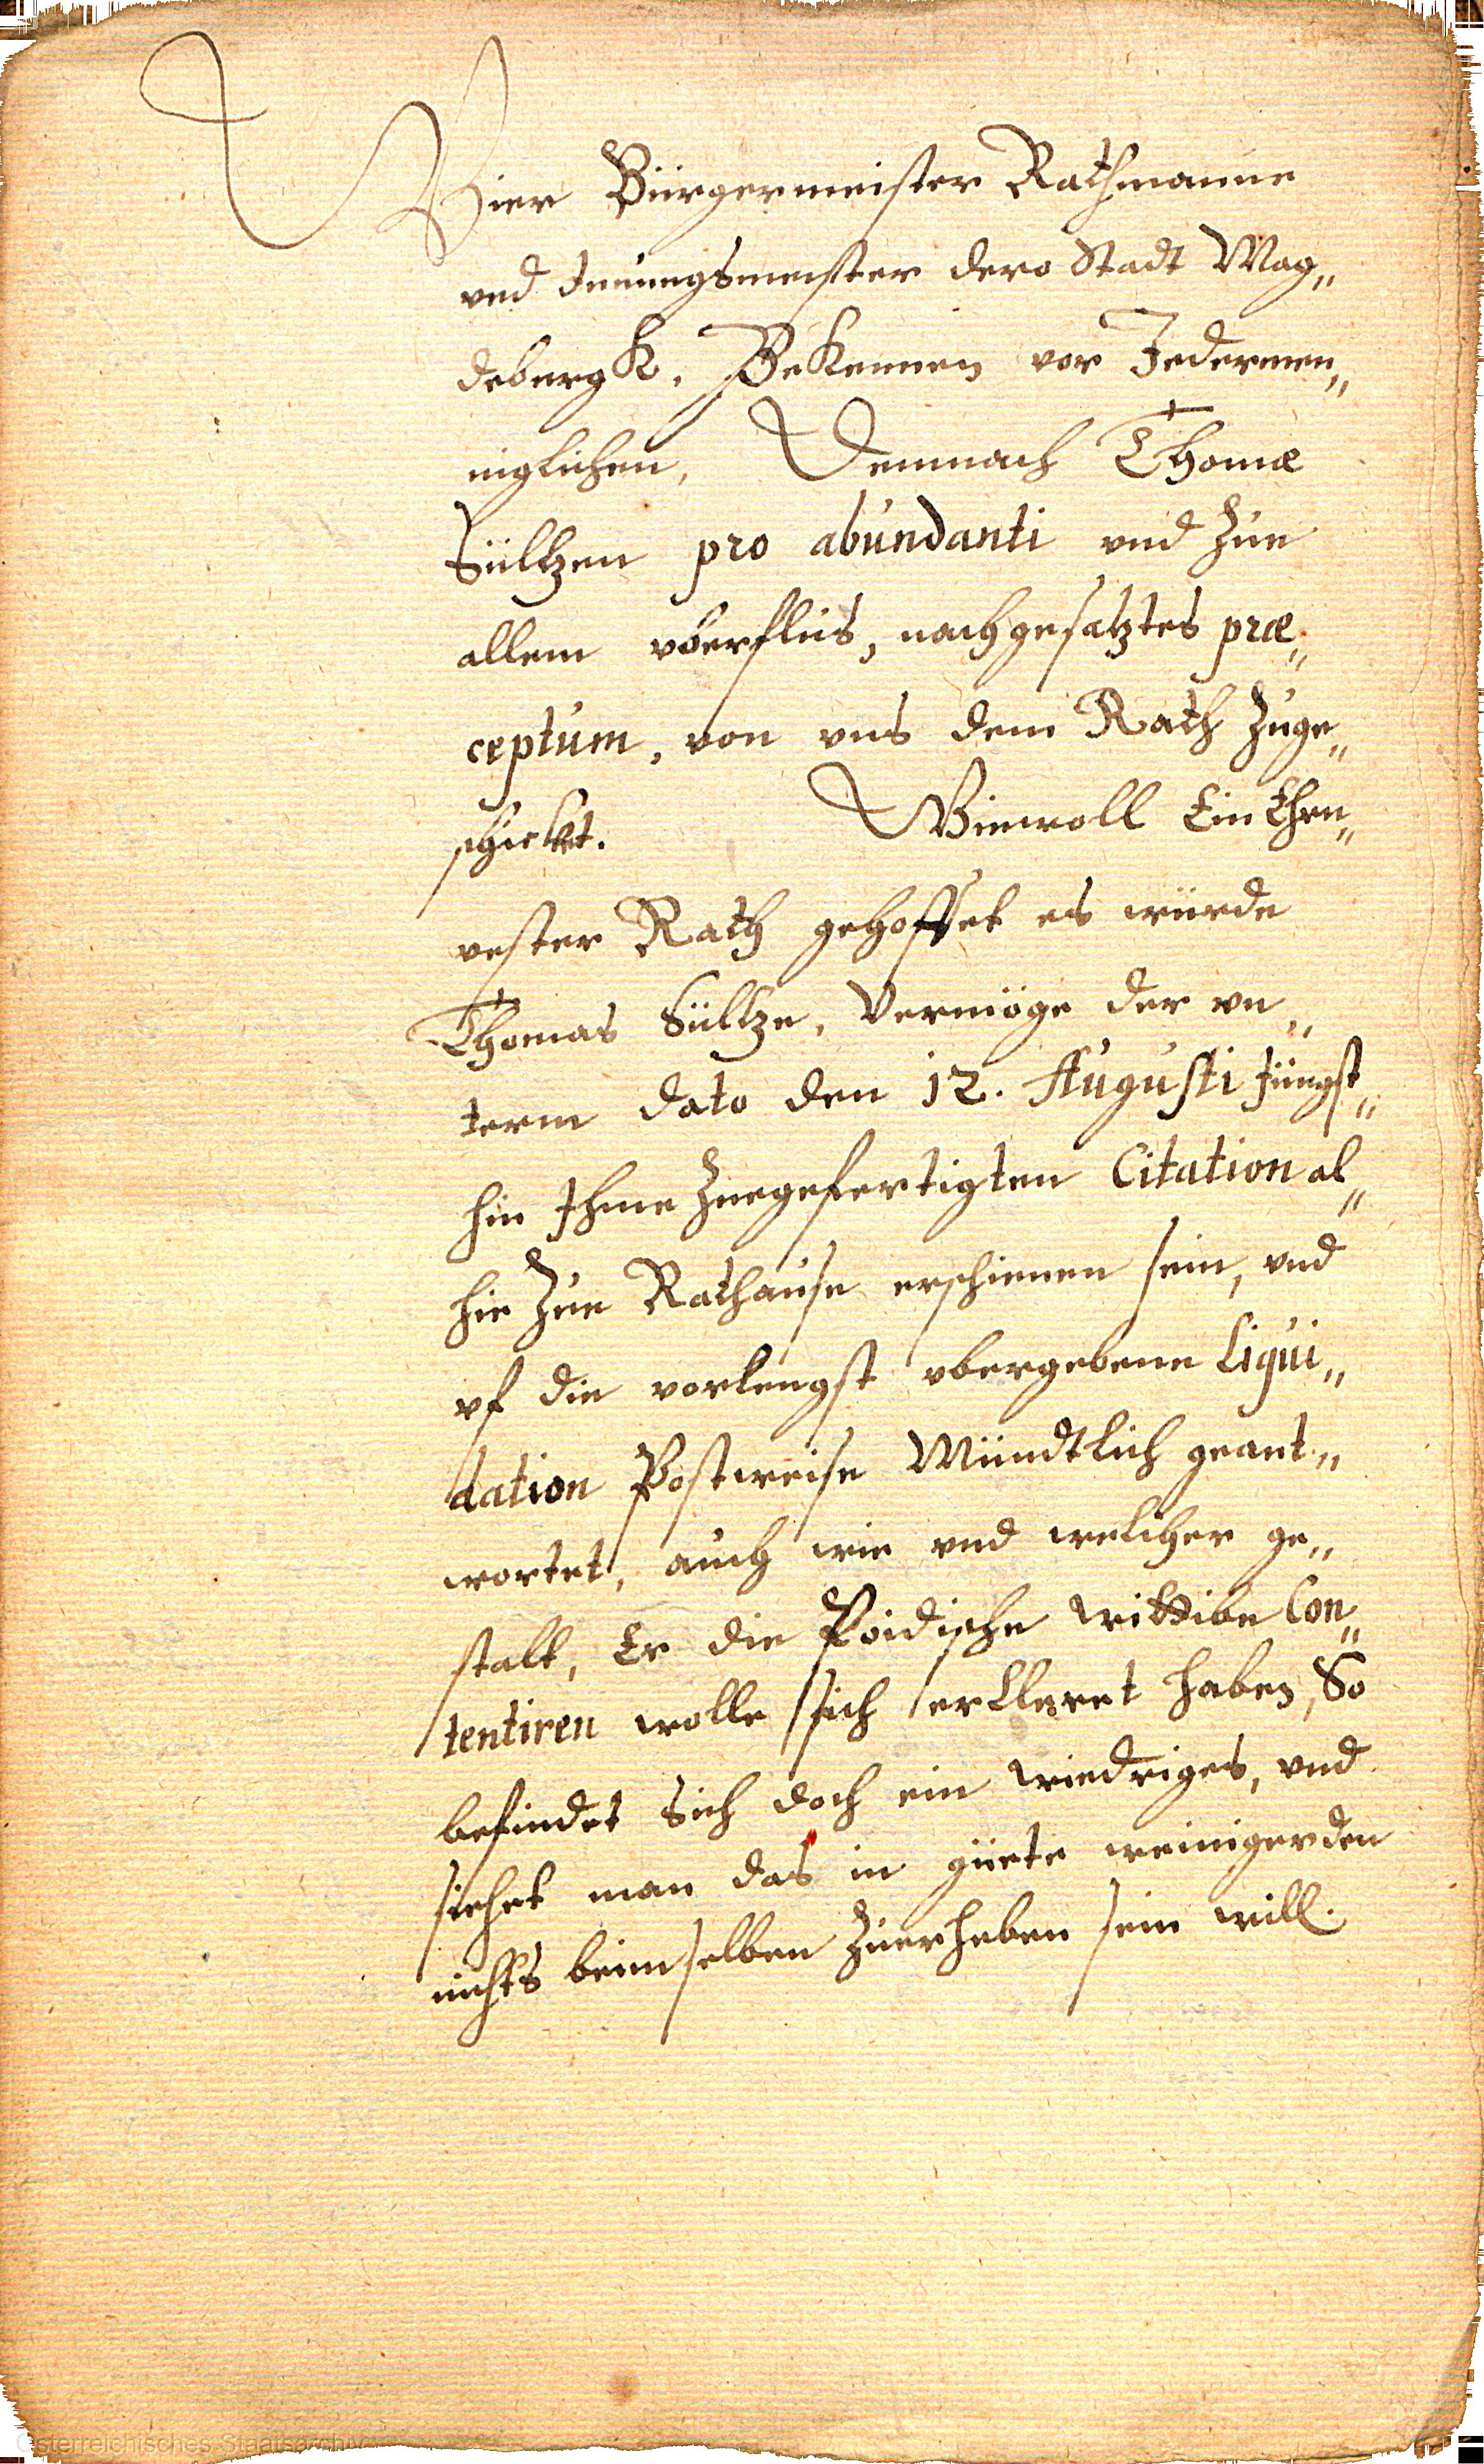 Wier Bürgermeister Rathmanne
vnd Innungsmeister dero Stadt Mag„
deburgk. Bekennen vor Jedermen„
niglichen, Demnach Thomæ
Sültzen pro abundanti vnd zue
allem vberflus, nachgesatztes præ„
ceptum, von vns dem Rath zuge„
schickt. Wiewoll Ein Ehrn„
vester Rath gehoffet es würde
Thomas Sültze, Vermöge der vn„
term dato den 12. Augusti jüngst„
hin Ihme zuegefertigten Citation al„
hie zue Rathause erschienen sein, vnd
vf die vorlengst vbergebene Liqui„
dation Postweise Mündtlich geant„
wortet, auch wie vnd welcher ge„
stalt, Er die Poidische wittibe Con„
tentiren wolle sich erkleret haben, So
befindet sich doch ein wiedriges, vnd
siehet man das in güete weiniger den
nichts beim selben zuerheben sein will.
Österreichisches Staatsarchiv